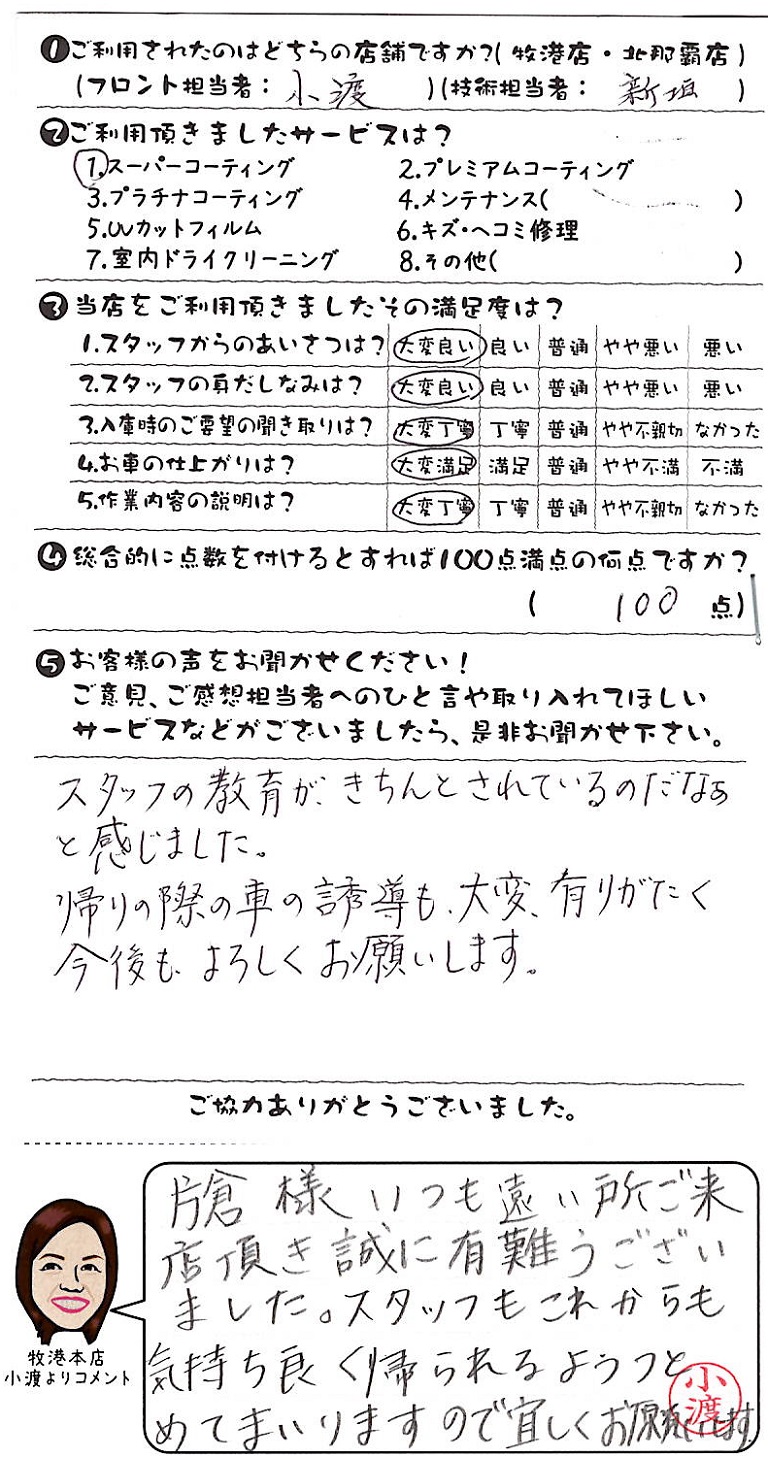 ❶ご利用されたのはどちらの店舗ですか?(牧港店・北那覇店)
(フロント担当者: 小渡 )(技術担当者: 新垣 )
❷ご利用頂きましたサービスは?
1.スーパーコーティング 2.プレミアムコーティング
3.プラチナコーティング 4.メンテナンス( )
5.UVカットフィルム 6.キズ・ヘコミ修理
7.室内ドライクリーニング 8.その他( )
❸当店をご利用頂きましたその満足度は?
1.スタッフからのあいさつは? 大変良い 良い 普通 やや悪い 悪い
2.スタッフの身だしなみは? 大変良い 良い 普通 やや悪い 悪い
3.入庫時のご要望の聞き取りは? 大変丁寧 丁寧 普通 やや不親切 なかった
4.お車の仕上がりは? 大変満足 満足 普通 やや不満 不満
5.作業内容の説明は? 大変丁寧 丁寧 普通 やや不親切 なかった
❹総合的に点数を付けるとすれば100点満点の何点ですか?
( 100 点)
❺お客様の声をお聞かせください!
ご意見、ご感想担当者へのひと言や取り入れてほしい
サービスなどがございましたら、是非お聞かせ下さい。
スタッフの教育が、きちんとされているのだなぁ
と感じました。
帰りの際の車の誘導も、大変、有りがたく
今後も、よろしくお願いします。
ご協力ありがとうございました。
片倉 様 いつも遠い所ご来
店頂き誠に有難うござい
ました。スタッフもこれからも
気持ち良く帰られるようつと
めてまいりますので宜しくお願いします
小渡
牧港本店
小渡よりコメント